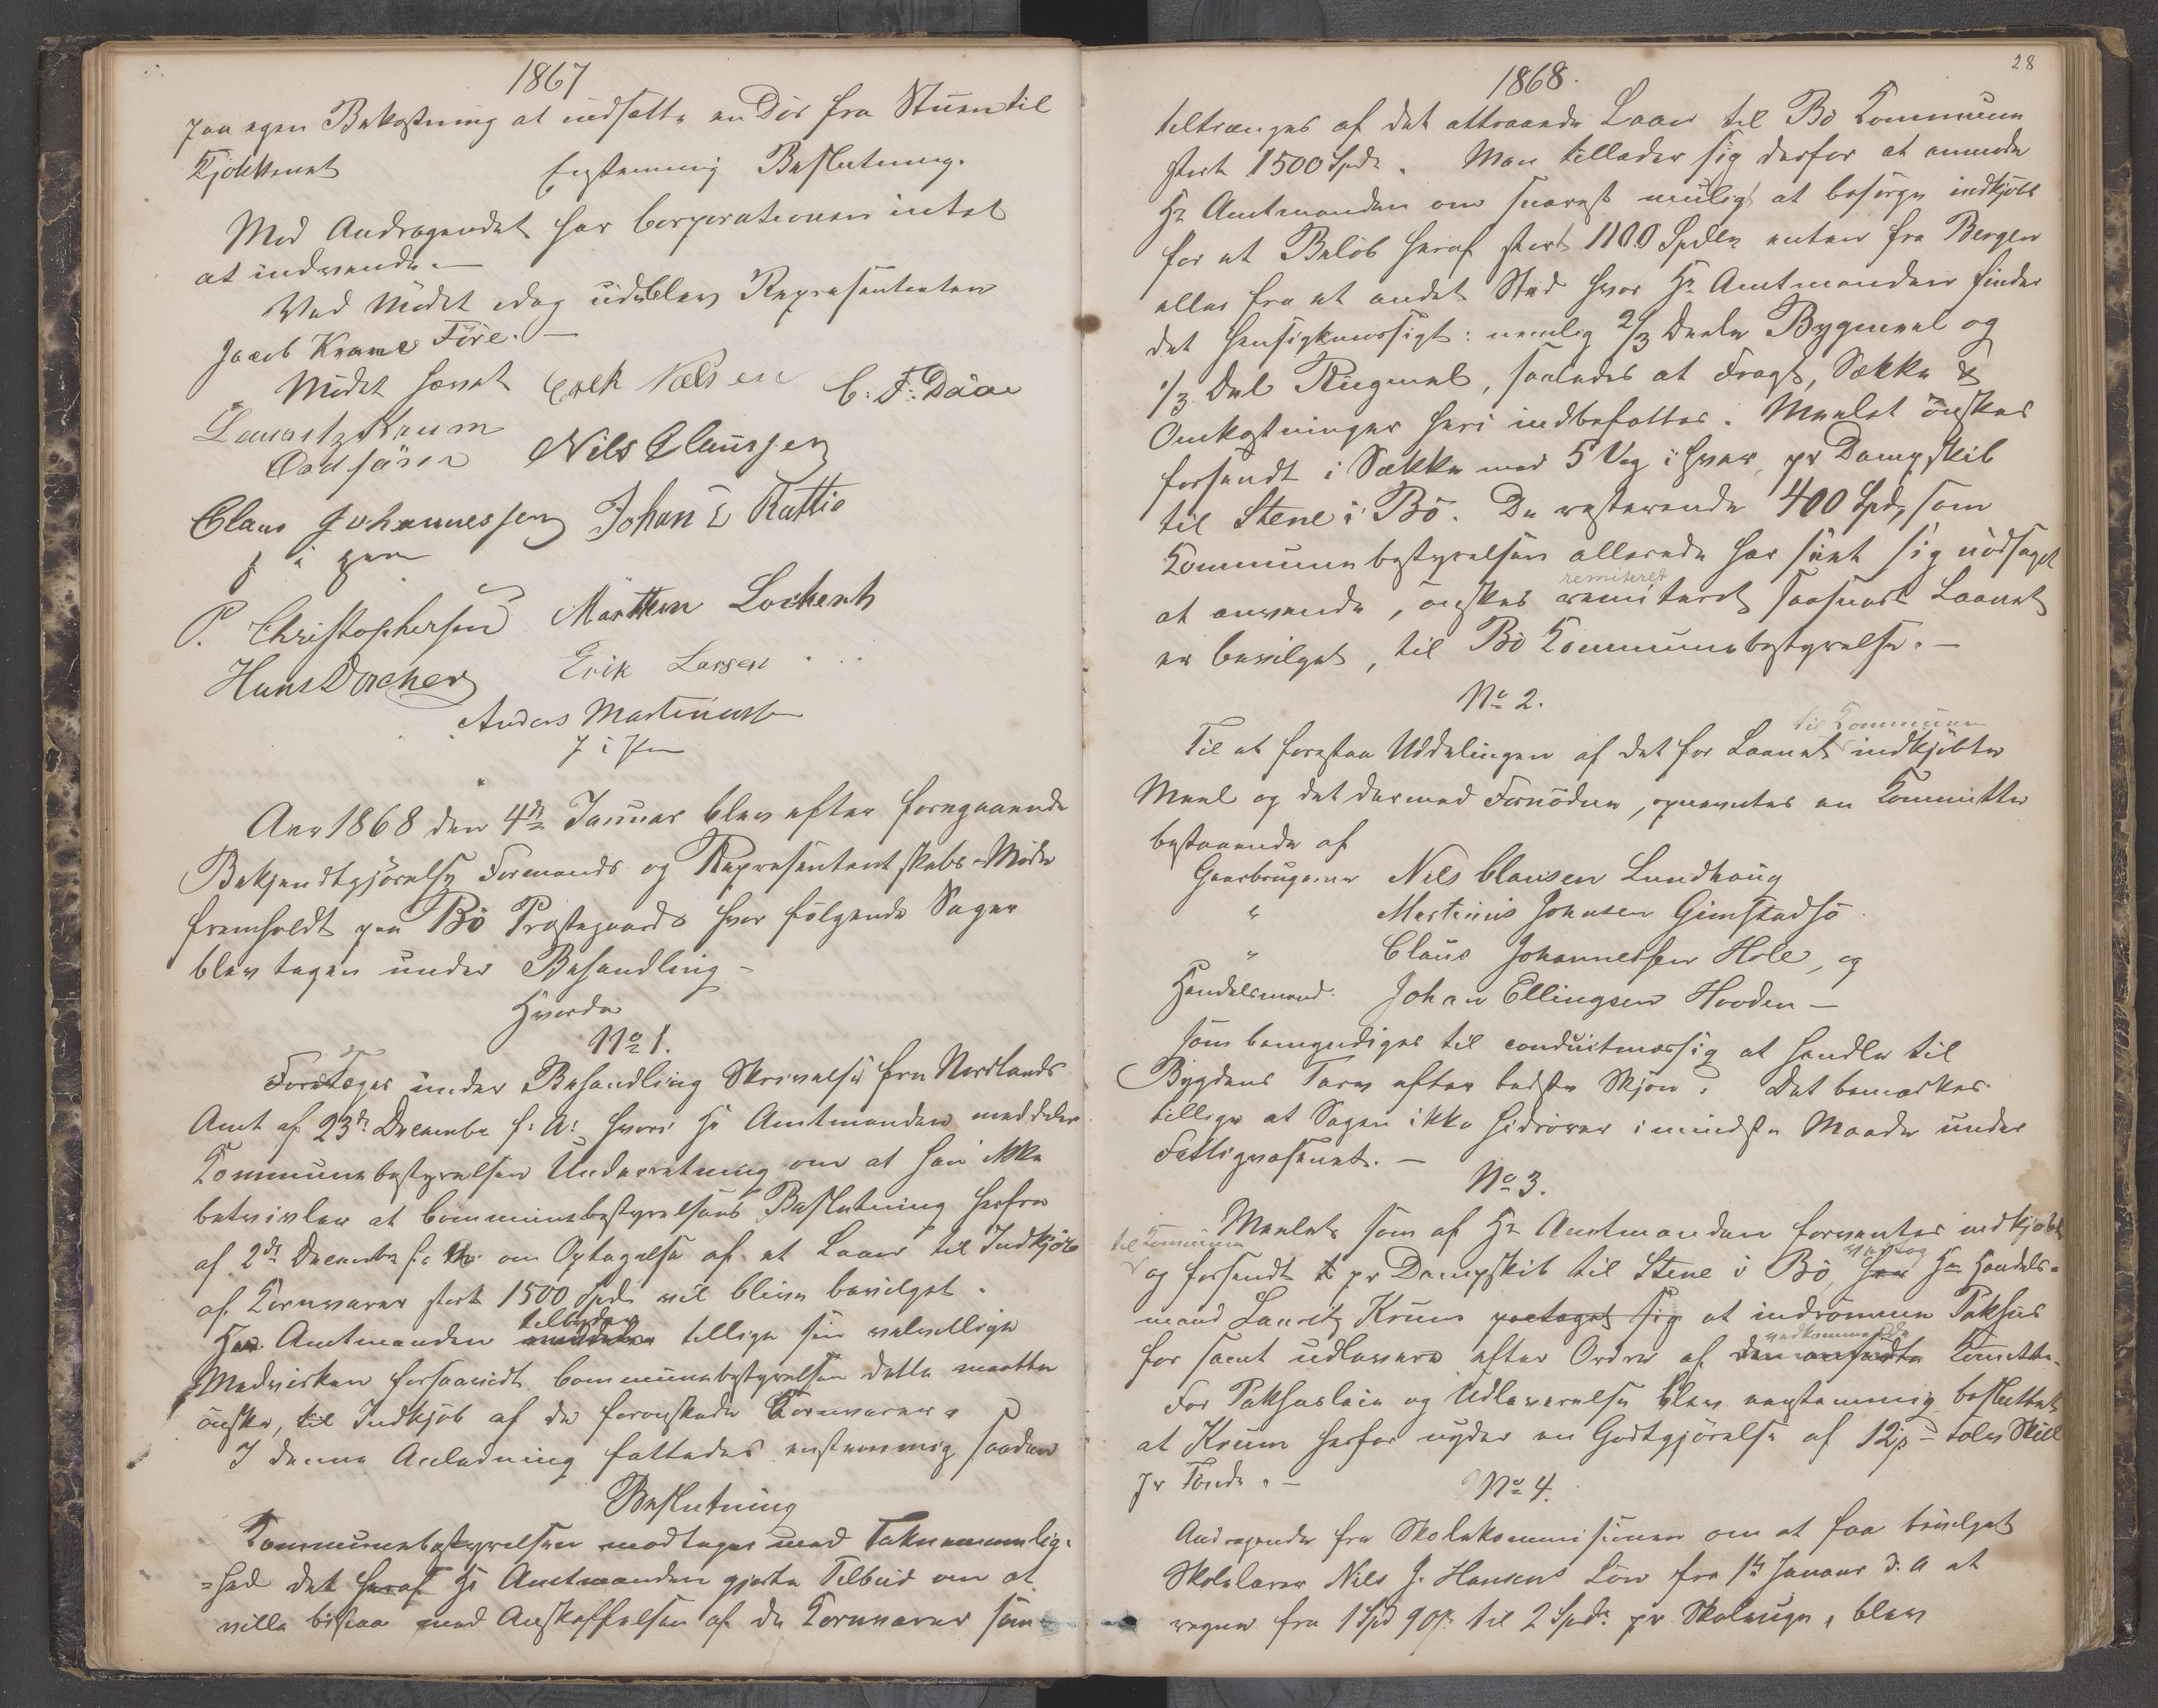 1867
paa egen Bekostning at indsætte en Dör fra Stuen til
Kjøkkenet Enstemmig Beslutning.
Mod Andragendet har Corporationen intet
at indvende. —
Ved Mödet idag udeblev Repræsentanten
Jacob Krane Före. —
Mödet hævet Erik Nelsen C. F. Daae
Lauritz Krum
Ordförer Nils Claussen
Claus Johannessen Johan E Rattie
f i pen
P. Christophersen Marthin Lockert
Hans Dorcher Erik Larsen
Anders Martinussen
f i Pen
Aar 1868 den 4de Januar blev efter foregaaende
Bekjendtgjörelse Formands og Repræsentantskabs-Möde
fremholdt paa Bö Prestegaard hvor fölgende Sager
blev tagen under Behandling —
Hvorda
No 1.
Foretages under Behandling Skrivelse fra Nordlands
Amt af 23de December f: A: hvori Hr Amtmanden meddeler
Kommunebestyrelsen Underretning om at han ikke
betvivler at Communebestyrelsens Beslutning herfra
af 2de December f: A: om Optagelse af et Laan til Indkjöb
af Kornvarer stort 1500 Spd vil blive bevilget.
tilbyder
Herr Amtmanden meddeler tillige sin velvillige
Medvirken forsaavidt Communebestyrelsen dette maatte
önske, til Indkjöb af de forönskede Kornvarer.
I denne Anledning fattedes enstemmig saadan
Beslutning
Kommunebestyrelsen modtager med Taknemmelig-
=hed det heraf Hr Amtmanden gjorte Tilbud om at
ville bistaa med Anskaffelsen af de Kornvarer som
28
1868.
tiltrænges af det attraaede Laan til Bö Kommune
stort 1500 Spd. Man tillader sig derfor at anmode
Hr Amtmanden om snarest muligt at besörge indkjöbt
for et Belöb heraf stort 1100 Spdlr enten fra Bergen
eller fra et andet Sted hvor Hr Amtmanden finder
det hensigtsmæssigt: nemlig 2/3 Deele Bygmeel og
1/3 Del Rugmel, saaledes at Fragt, Sække &
Omkostninger heri indbefattes. Meelet önskes
forsendt i Sække med 5 Vog i hver, pr Dampskib
til Stene i Bö. De resterende 400 Spd, som
Kommunebestyrelsen allerede har seet sig nödsaget
remiteret
at anvende, önskes remiteret saasnart Laanet
er bevilget, til Bö Kommunebestyrelse. —
No 2.
til Kommunen
Til at forestaa Uddelingen af det for Laanet indkjöbte
Meel og det dermed Fornödne, opnævntes en Committe
bestaaende af
Gaardbrugerne Nils Clausen Lundhaug
" Martinus Johnsen Gimstadsö
" Claus Johannessen Hole, og
Handelsmand Johan Ellingsen Hovden —
som bemyndiges til conduitmæssig at handle til
Bygdens Tarv efter bedste Skjön. Det bemærkes
tillige at Sagen ikke hidrörer i mindste Maade under
Fattigvæsenet. —
No 3.
Meelet som af Hr Amtmanden forventes indkjöbt
til Kommunen
og forsendt pr Dampskib til Stene i Bö, har Hr Handels-
mand Lauritz Krum paataget sig at indrömme Pakhus
vedkommende
for samt udlevere efter Ordre af den ansatte Comitte.
For Pakhusleie og Udleverelse blev eenstemmig besluttet
at Krum herfor nyder en Godtgjörelse af 12 ß - tolv Skill
pr Tönde. —
No 4.
Andragende fra Skolekommisionen om at faa bevilget
Skolelærer Nils J. Hansens Lön fra 1ste Januar d. A at
regne fra 1 Spd 90 ß til 2 Spd pr Skoleuge, blev